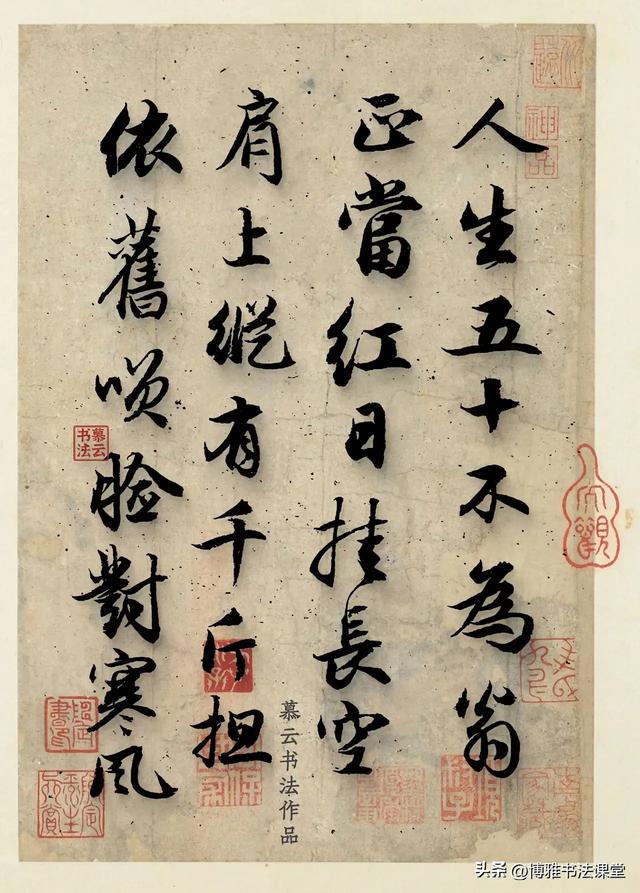 人生五十不為翁
正當紅日挂長空
肩上縱有千斤担
依舊咲脸對寒風
慕云书法作品
慕云书法
神品
大觀
头条 @博雅书法课堂